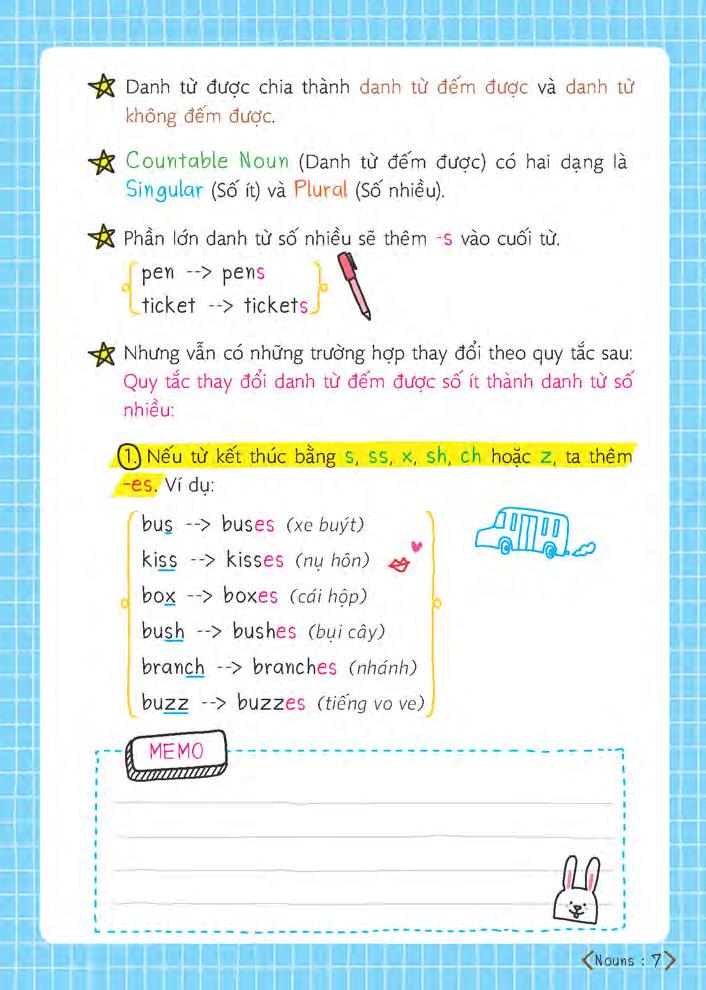 Danh từ được chia thành danh từ đếm được và danh từ
không đếm được.
Countable Noun (Danh từ đếm được) có hai dạng là
Singular (Số ít) và Plural (Số nhiều).
Phần lớn danh từ số nhiều sẽ thêm -s vào cuối từ.
pen --> pens
ticket --> tickets
Nhưng vẫn có những trường hợp thay đổi theo quy tắc sau:
Quy tắc thay đổi danh từ đếm được số ít thành danh từ số
nhiều:
1. Nếu từ kết thúc bằng s, ss, x, sh, ch hoặc z, ta thêm
-es. Ví dụ:
bus --> buses (xe buýt)
kiss --> kisses (nụ hôn)
box --> boxes (cái hộp)
bush --> bushes (bụi cây)
branch --> branches (nhánh)
buzz --> buzzes (tiếng vo ve)
MEMO
Nouns : 7